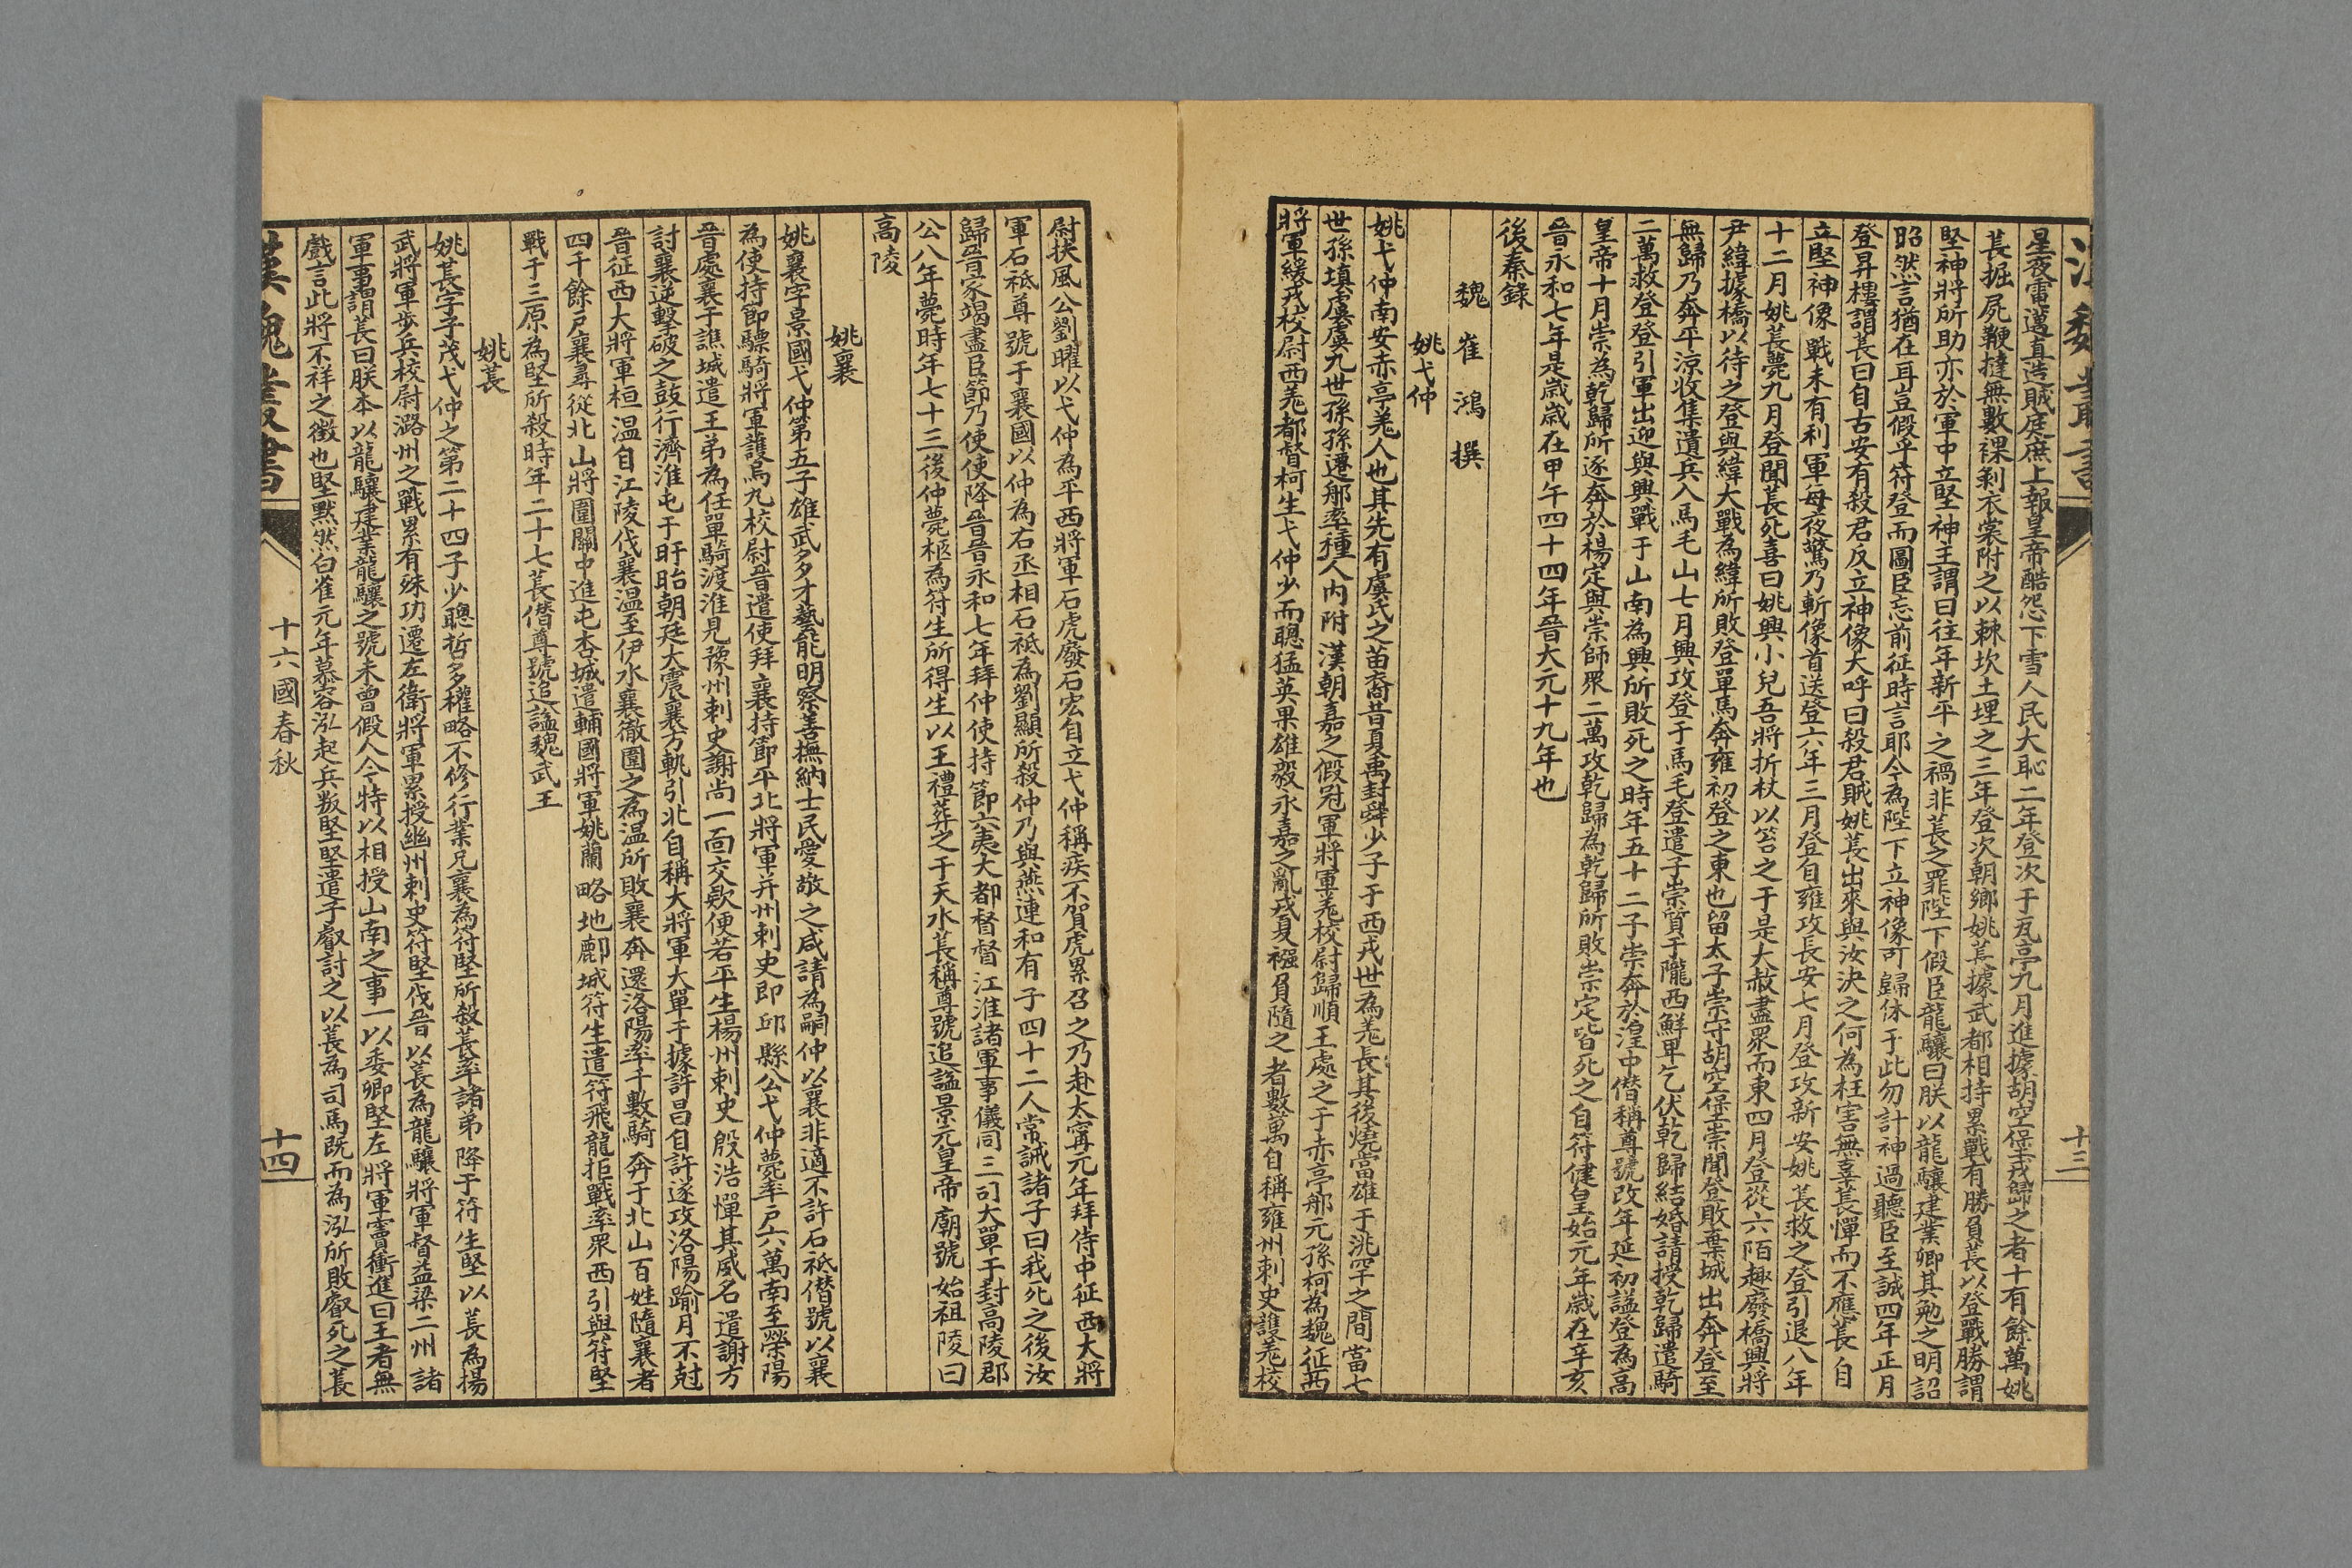 漢魏叢書
十三
星夜電邁直造賊庭庶上報皇帝酷怨下雪人民大恥二年登次于瓦亭九月進據胡空保戎歸之者十有餘萬姚
萇掘屍鞭撻無數裸剝衣裳附之以棘坎土埋之三年登次朝鄉姚萇據武都相持累戰有勝負萇以登戰勝謂
堅神將所助亦於軍中立堅神王謂曰往年新平之禍非萇之罪陛下假臣龍驤曰朕以龍驤建業卿其勉之明詔
昭然言猶在耳豈假乎符登而圖臣忘前征時言耶今為陛下立神像可歸休于此勿計神過聽臣至誠四年正月
登昇樓謂萇曰自古安有殺君反立神像大呼曰殺君賊姚萇出來與汝決之何為枉害無辜萇憚而不應萇自
立堅神像戰未有利軍每夜驚乃斬像首送登六年三月登自雍攻長安七月登攻新安姚萇救之登引退八年
十二月姚萇薨九月登聞萇死喜曰姚興小兒吾將折杖以笞之于是大赦盡眾而東四月登從六陌趣廢橋興將
尹緯據橋以待之登與緯大戰為緯所敗登單馬奔雍初登之東也留太子崇守胡空保崇聞登敗棄城出奔登至
無歸乃奔平涼收集遺兵入馬毛山七月興攻登于馬毛登遣子崇質于隴西鮮卑乞伏乾歸結婚請授乾歸遣騎
二萬救登登引軍出迎與興戰于山南為興所敗死之時年五十二子崇奔於湟中僭稱尊號改年延初謚登為高
皇帝十月崇為乾歸所逐奔於楊定與崇師眾二萬攻乾歸為乾歸所敗崇定皆死之自符健皇始元年歲在辛亥
晉永和七年是歲歲在甲午四十四年晉大元十九年也
後秦錄
魏 崔鴻 撰
姚弋仲
姚弋仲南安赤亭羌人也其先有虞氏之苗裔昔夏禹封舜少子于西戎世為羌長其後燒當雄于洮罕之間當七
世孫填虞虞九世孫孫遷那率種人內附漢朝嘉之假冠軍將軍羌校尉歸順王處之于赤亭那元孫柯為魏征西
將軍綏戎校尉西羌都督柯生弋仲少而聰猛英果雄毅永嘉之亂戎夏襁負隨之者數萬自稱雍州刺史護羌校
尉扶風公劉曜以弋仲為平西將軍石虎廢石宏自立弋仲稱疾不賀虎累召之乃赴太寧元年拜侍中征西大將
軍石祗尊號于襄國以仲為右丞相石祗為劉顯所殺仲乃與燕連和有子四十二人常誡諸子曰我死之後汝
歸晉家竭盡臣節乃使使降晉晉永和七年拜仲使持節六夷大都督督江淮諸軍事儀同三司大單于封高陵郡
公八年薨時年七十三後仲薨柩為符生所得生以王禮葬之于天水萇稱尊號追謚景元皇帝廟號始祖陵曰
高陵
姚襄
姚襄字景國弋仲第五子雄武多才藝能明察善撫納士民愛敬之咸請為嗣仲以襄非適不許石祗僭號以襄
為使持節驃騎將軍護烏九校尉晉遣使拜襄持節平北將軍并州刺史即邱縣公弋仲薨率戶六萬南至滎陽
晉處襄于譙城遣王弟為任單騎渡淮見豫州刺史謝尚一面交欵便若平生楊州刺史殷浩憚其威名遣謝方
討襄逆擊破之鼓行濟淮屯于盱眙朝廷大震襄方軌引北自稱大將軍大單于據許昌自許遂攻洛陽踰月不尅
晉征西大將軍桓溫自江陵伐襄溫至伊水襄徹圍之為溫所敗襄奔還洛陽率千數騎奔于北山百姓隨襄者
四千餘戶襄尋從北山將圍關中進屯杏城遣輔國將軍姚蘭略地鄜城符生遣符飛龍拒戰率眾西引與符堅
戰于三原為堅所殺時年二十七萇僭尊號追謚魏武王
姚萇
姚萇字子茂弋仲之第二十四子少聰哲多權略不修行業兄襄為符堅所殺萇率諸弟降于符生堅以萇為揚
武將軍步兵校尉潞州之戰累有殊功遷左衛將軍累授幽州刺史符堅伐晉以萇為龍驤將軍督益梁二州諸
軍事謂萇曰朕本以龍驤建業龍驤之號未曾假人今特以相授山南之事一以委卿堅左將軍竇衝進曰王者無
戲言此將不祥之徵也堅默然白雀元年慕容泓起兵叛堅堅遣子叡討之以萇為司馬既而為泓所敗叡死之萇
漢魏叢書
十六國春秋
十四